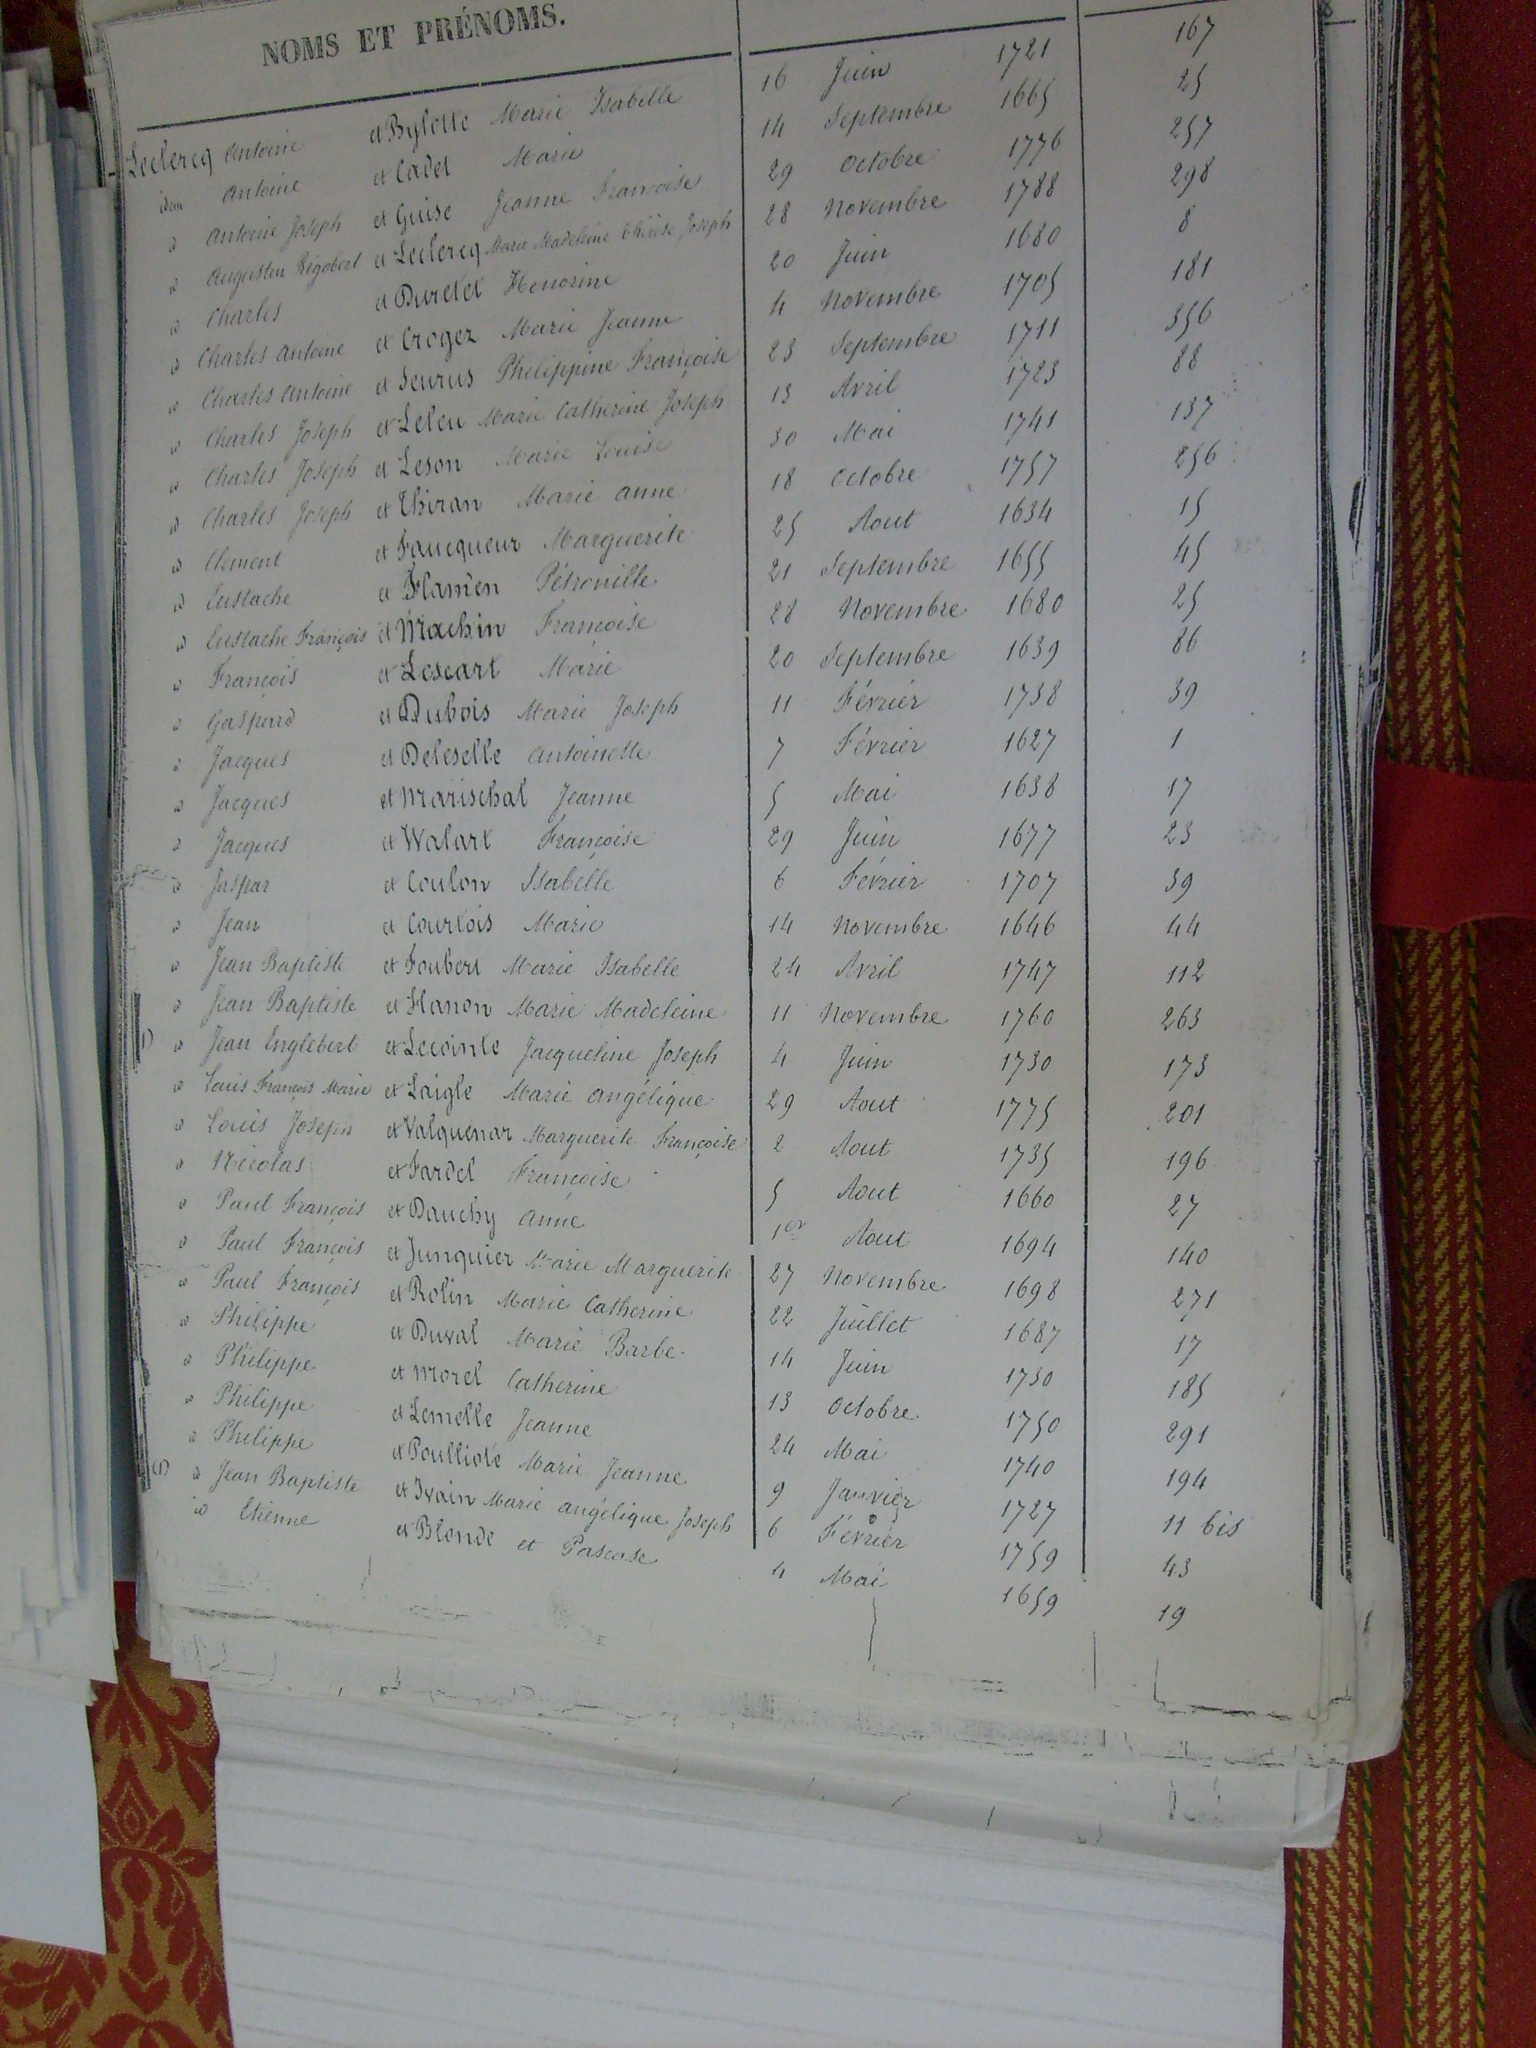 NOMS ET PRÉNOMS.
Leclercq Antoine et Bylotte Marie Isabelle 16 Juin 1721 167
idem Antoine et Cadet Marie 14 Septembre 1665 25
id Antoine Joseph et Guise Jeanne Françoise 29 Octobre 1776 257
id Augustin Rigobert et Leclercq Marie Madeleine Thérèse Joseph 28 Novembre 1788 298
id Charles et Duretet Honorine 20 Juin 1680 8
id Charles Antoine et Crogez Marie Jeanne 4 Novembre 1705 181
id Charles Antoine et Seurus Philippine Françoise 23 Septembre 1711 356
id Charles Joseph et Leleu Marie Catherine Joseph 13 Avril 1723 88
id Charles Joseph et Leson Marie Louise 30 Mai 1741 137
id Charles Joseph et Thiran Marie Anne 18 Octobre 1757 256
id Clement et Faucqueur Marguerite 25 Aout 1634 15
id Eustache et Flamen Pétronille 21 Septembre 1655 45
id Eustache François et Machin Françoise 28 Novembre 1680 25
id François et Lescart Marie 20 Septembre 1639 86
id Gaspard et Dubois Marie Joseph 11 Février 1738 39
id Jacques et Deleselle Antoinette 7 Février 1627 1
id Jacques et Marischal Jeanne 5 Mai 1638 17
id Jacques et Walart Françoise 29 Juin 1677 23
id Jaspar et Coulon Isabelle 6 Février 1707 39
id Jean et Courtois Marie 14 Novembre 1646 44
id Jean Baptiste et Foubert Marie Isabelle 24 Avril 1747 112
id Jean Baptiste et Hanon Marie Madeleine 11 Novembre 1760 263
id Jean Englebert et Lecointe Jacqueline Joseph 4 Juin 1730 173
id Louis François Marie et Laigle Marie Angélique 29 Aout 1775 201
id Louis Joseph et Valquenar Marguerite Françoise 2 Aout 1735 196
id Nicolas et Fardel Françoise 5 Aout 1660 27
id Paul François et Dauchy Anne 1er Aout 1694 140
id Paul François et Junquier Marie Marguerite 27 Novembre 1698 271
id Paul François et Rolin Marie Catherine 22 Juillet 1687 17
id Philippe et Duval Marie Barbe 14 Juin 1730 185
id Philippe et Morel Catherine 13 Octobre 1750 291
id Philippe et Lemelle Jeanne 24 Mai 1740 194
id Philippe et Poulliote Marie Jeanne 9 Janvier 1727 11 bis
id Jean Baptiste et Ivain Marie Angélique Joseph 6 Février 1759 43
id Etienne et Blonde et Pascase 4 Mai 1659 19